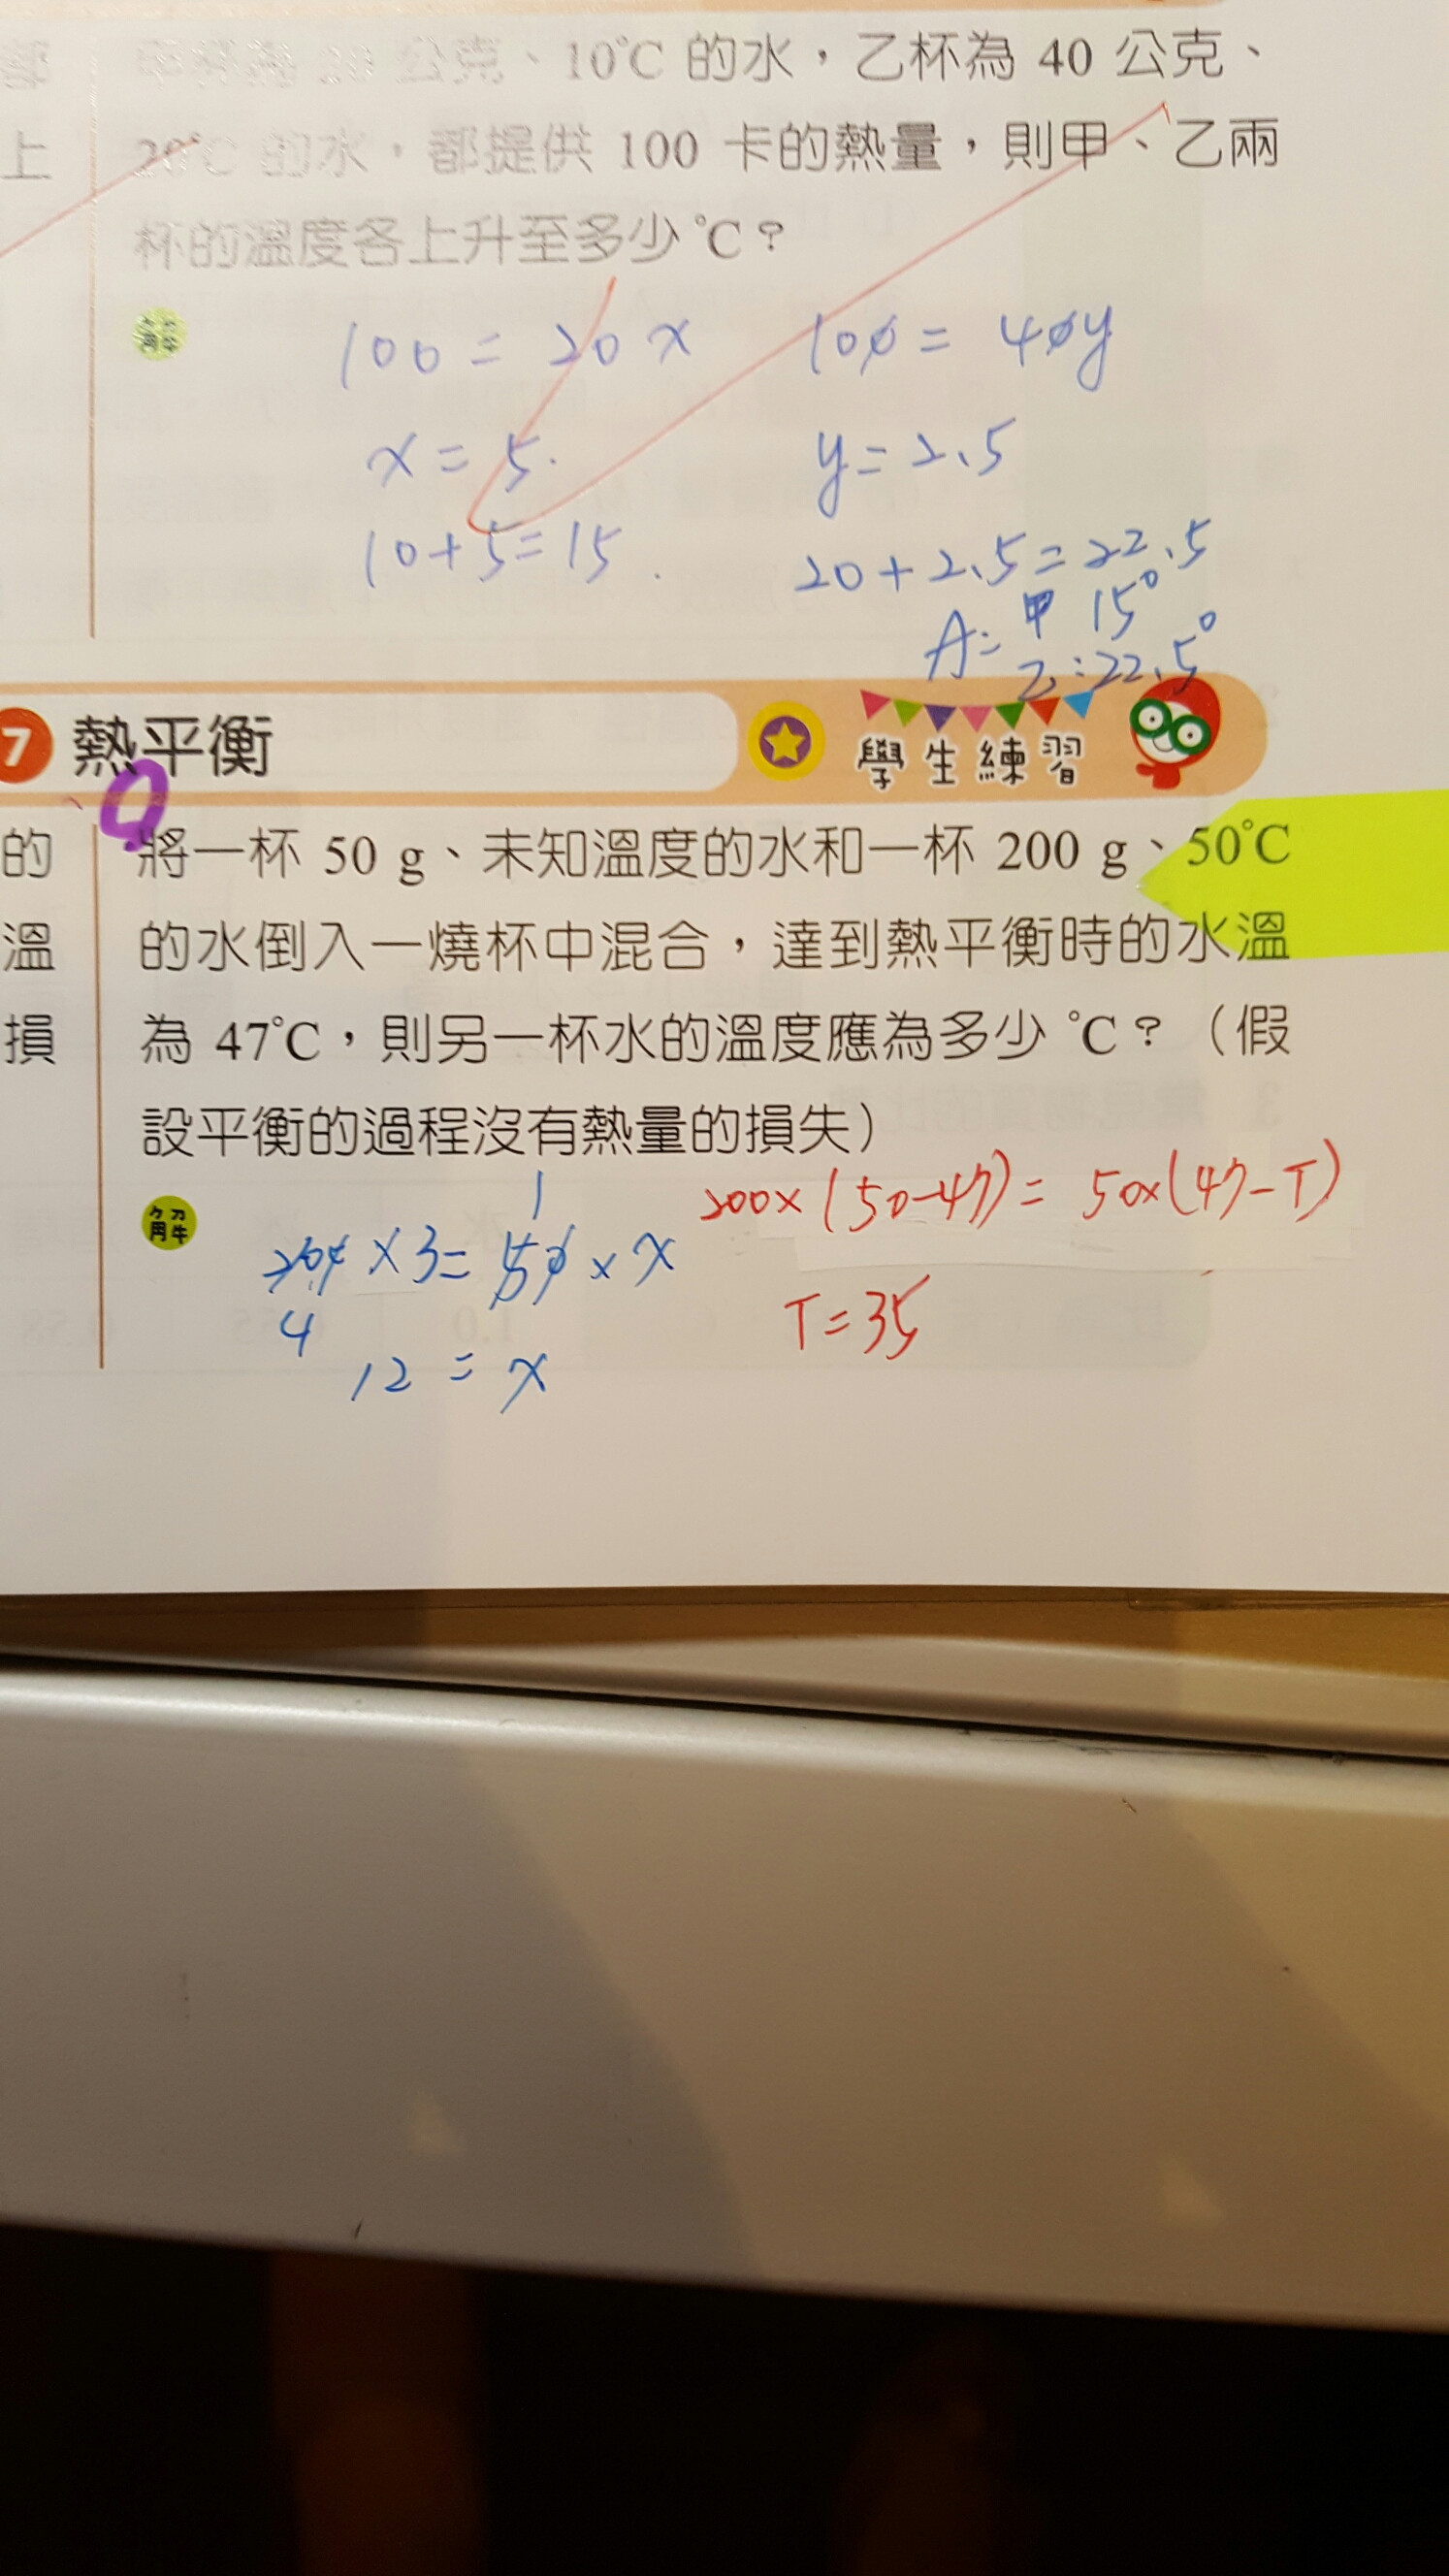 都
上
甲杯為 20 公克、10℃ 的水，乙杯為 40 公克、
20℃ 的水，都提供 100 卡的熱量，則甲、乙兩
杯的溫度各上升至多少 ℃？
解
100 = 20 x
x = 5.
10+5=15.
100 = 40y
y = 2.5
20 + 2.5 = 22.5
A: 甲 15°
乙:22.5°
7 熱平衡
學生練習
的
溫
損
將一杯 50 g、未知溫度的水和一杯 200 g、50℃
的水倒入一燒杯中混合，達到熱平衡時的水溫
為 47℃，則另一杯水的溫度應為多少 ℃？（假
設平衡的過程沒有熱量的損失）
解
1
200 × 3 = 50 × x
4
12 = x
200×(50-47) = 50×(47-T)
T = 35